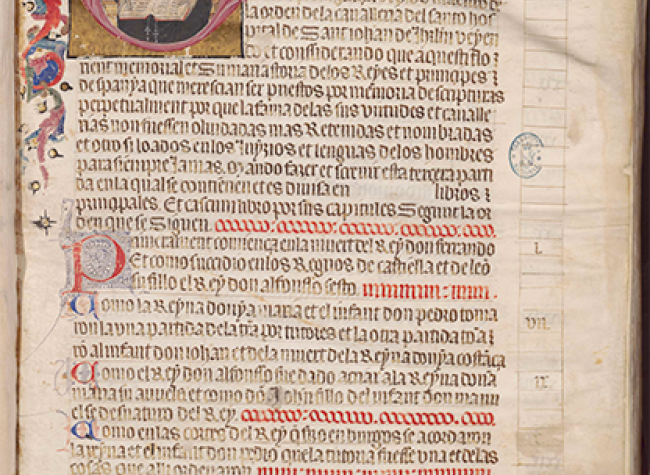 la orden de la caualleria del santo hos
pital de Sant iohan de iherusalem veyen
do et considerando que aquesti flo
rient memorial et Sumaria storia delos Reyes et principes ⁊
de spanya que merescian ser puestos por memoria de scripturas
perpetualment por que la fama de las sus virtudes et caualle
rias non fuessen oluidadas mas Retenidas et nombradas
et otro si loados en los Juyzios et lenguas delos hombres
para siempre Jamas. Mando fazer et screuir esta tercera parti
da en la qual se contienen et es diuisa en libros ⁊
principales. Et cascun libro por sus capitulos Segunt la or
den que se Siguen.
Primerament comiença en la muert del Rey don ferrando
Et como succedio en los Regnos de castiella et de leo
su fillo el Rey don alfonsso sesto.
I.
Como la Reyna donya maria et el infant don pedro toma
ron la vna partida de la tierra por tutores et la otra partida
VII.
al infant don iohan et de la muert de la Reyna donya costança
Como el Rey don alfonsso fue dado a criar a la Reyna dona
IX.
maria su auuela et como don Johan fillo del infant don manu
el se desnaturo del Rey.
Como en las cortes del Rey en burgos se acordaron
la Reyna et el infant don pedro que la tutoria fuesse vna et de las
cosas que alli ordenaron